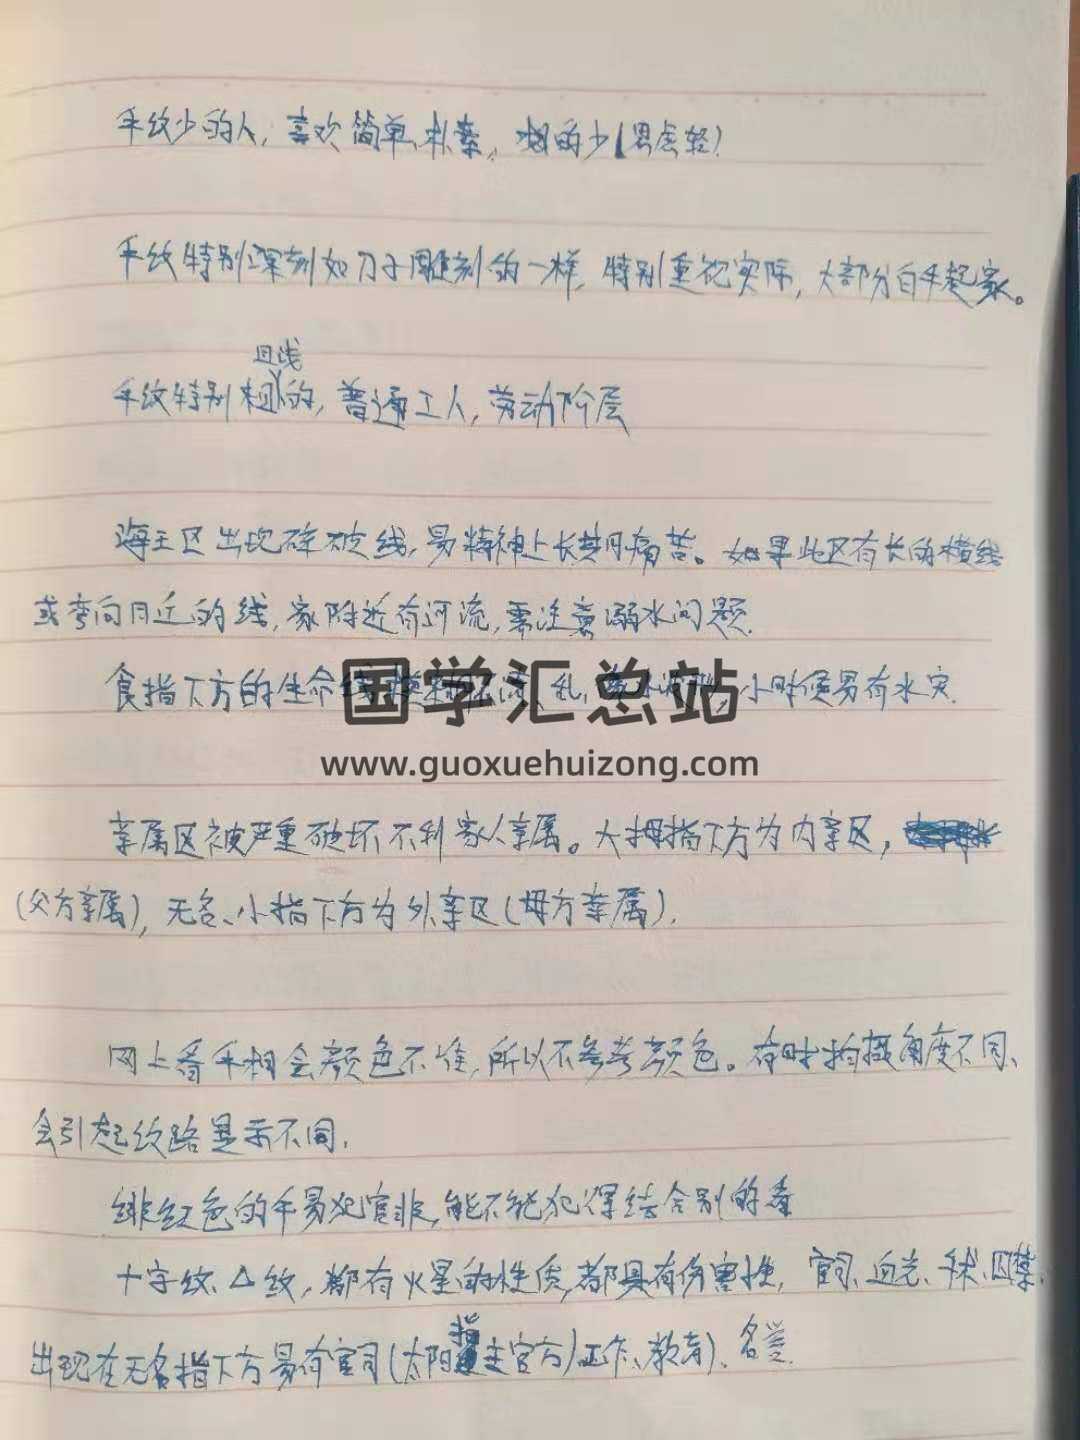 手纹少的人，喜欢简单、朴素，想的少（思虑轻）
手纹特别深刻如刀子雕刻的一样，特别重视实际，大部分白手起家。
且浅
手纹特别粗的，普通工人，劳动阶层
海王区出现碎破线，易精神上长期痛苦。如果此区有长的横线
或弯向月丘的线，家附近有河流，需注意溺水问题.
食指下方的生命线 乱, 小时候易有水灾.
国学汇总站
www.guoxuehuizong.com
亲属区被严重破坏不利家人亲属。大拇指下方为内亲区，
(父方亲属)，无名、小指下方为外亲区(母方亲属).
网上看手相会颜色不准，所以不参考颜色。有时拍摄角度不同、
会引起纹路显示不同.
绯红色的手易犯官非，能不能犯得结合别的看
十字纹、△纹，都有火星的性质，都具有伤害性，官司、血光、手术、囚禁、
出现在无名指下方易有官司(太阳指主官方)工作、教育)、名誉.